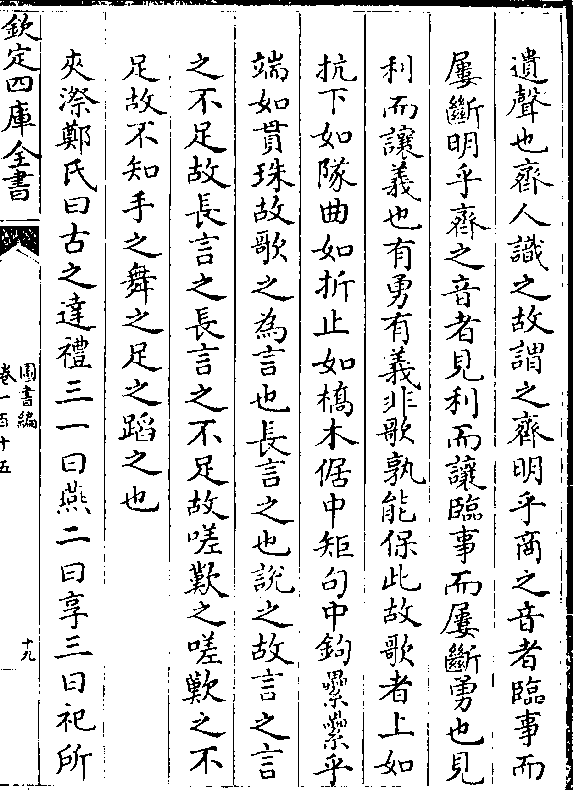 遺聲也齊人識之故謂之齊明乎商之音者臨事而
屢斷明乎齊之音者見利而讓臨事而屢斷勇也見
利而讓義也有勇有義非歌孰能保此故歌者上如
抗下如隊曲如折止如槁木倨中矩句中鉤纍纍乎
端如貫珠故歌之為言也長言之也說之故言之言
之不足故長言之長言之不足故嗟歎之嗟歎之不
足故不知手之舞之足之蹈之也
夾漈鄭氏曰古之達禮三一曰燕二曰享三曰祀所
欽定四庫全書
圖書編
卷一百十五
十九